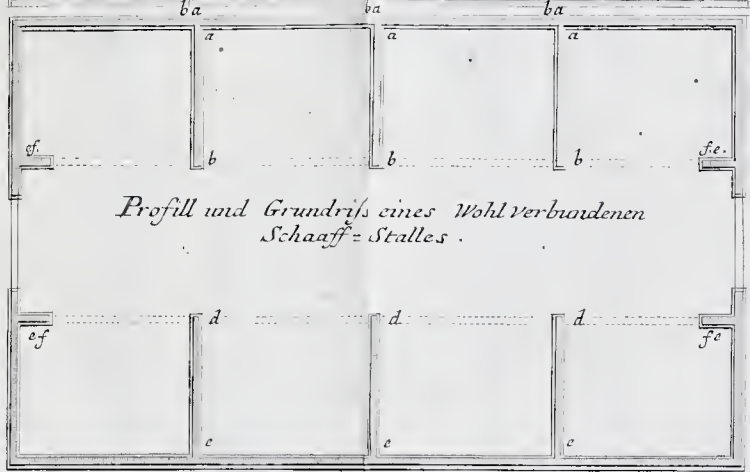 ba ba ba
a a a
ef. b b b f.e.
Profill und Grundriſs eines Wohl verbundenen
Schaaff = Stalles .
d d d
ef fe
c c c